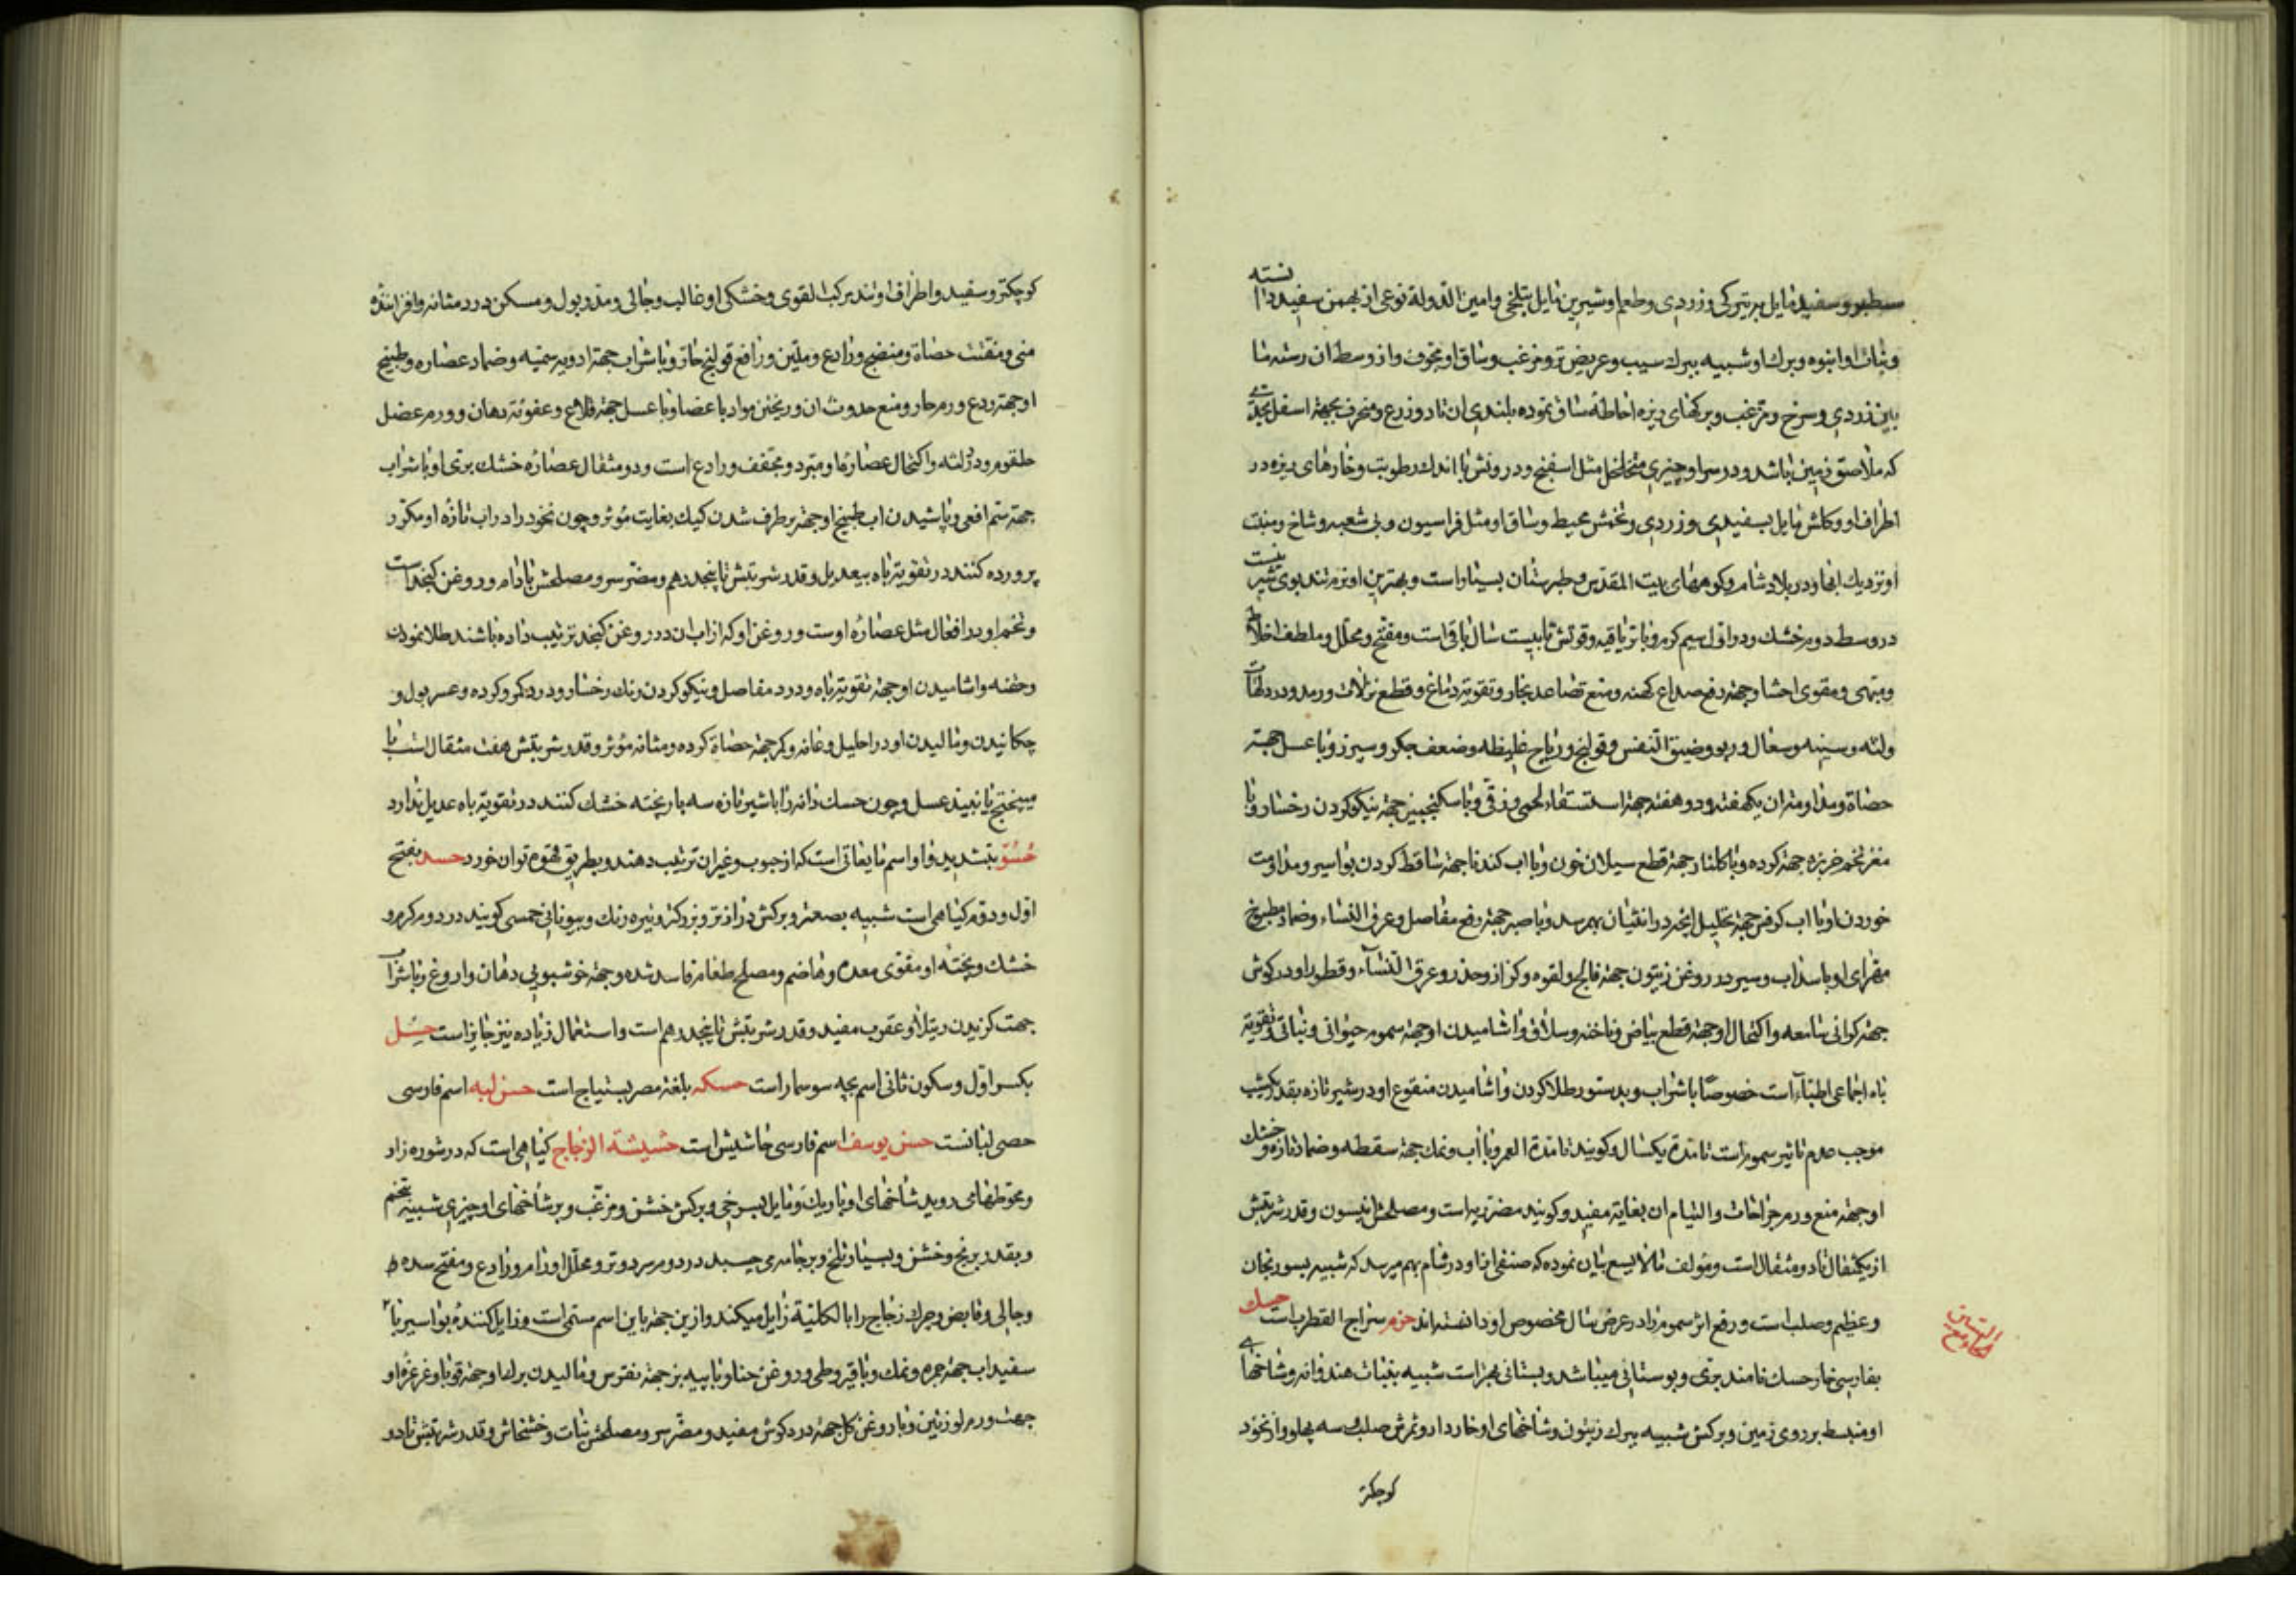 سطبر و سفید مایل بریترکی و زردی و طعم او شیرین مایل بتلخی و امین الدوله نوعی از بهمن سفید دانسته
و نبات او انبوه و برک او شبیه ببرک سیب و عریض تر و مزغب و ساق او مجوف و از وسط ان رسته ما
بین زردی و سرخ و مزغب و برکهای ریزه احاطه ساق نموده بلندی ان تا دو زرع و منحرف بجهة اسفل بحدی
که ملاصق زمین باشد و در سر او چیزی متخلخل مثل اسفنج و درونش با اندک رطوبت و خارهای ریزه در
اطراف او و کلش مایل بسفیدی و زردی و تخمش محیط و ساق او مثل فراسیون و بی شعبه و شاخ و منبت
او نزدیک ابها و در بلاد شام و کوههای بیت المقدس و طبرستان بسیار است و بهترین او نرم تند بوی
در وسط دوم خشک و در اول سیم کرم و با تریاقیه و قوتش تا بیست سال باقی است و مفتح و محلل و ملطف اخلاط
و مبهی و مقوی احشا و جهته رفع صداع کهنه و منع تصاعد بخار و تقویة دماغ و قطع نزلات و رمد و درد لهات
و لثه و سینه و سعال و ربو و ضیق النفس و قولنج و ریاح غلیظه و ضعف جکر و سپرز و با عسل جهته
حصاة و مداومت ان یکهفته و دو هفته جهة استسقاء لحمی و زقی و با سکنجبین جهة نیکو کردن رخسار و با
مغز تخم خربزه جهة کرده و با کلنار جهة قطع سیلان خون و با اب کندنا جهة ساقط کردن بواسیر و مداومت
خوردن او با اب کرفس جهة تحلیل انچه در انثیان بهم رسد و با صبر جهة رفع مفاصل و عرق النساء و ضماد مطبوخ
مهرای او با سداب و سیر در روغن زیتون جهة فالج و لقوه و کزاز و خدر و عرق النسآء و قطور او در کوش
جهة کرانی سامعه و اکتحال او جهة قطع بیاض و ناخنه و سلاق و اشامیدن او جهة سموم حیوانی و نباتی و تقویة
باه اجماعی اطبآء است خصوصًا با شراب و بدستور طلا کردن و اشامیدن منقوع او در شیر تازه بقدر یکشب
موجب عدم تاثیر سموم است تا مدة یکسال و کویند تا مدة العمر و با اب و نمک جهة سقطه و ضماد تازه و خشک
او جهة منع ورم جراحات و التیام ان بغایة مفید و کویند مضر ریه است و مصلحش انیسون و قدر شربتش
از یکمثقال تا دو مثقال است و مؤلف مالایسع بیان نموده که صنفی از او در شام بهم میرسد که شبیه بسورنجان
و عظیم و صلب است و رفع اثر سموم را در عرض سال مخصوص او دانسته‌اند حزم سراج القطرب است حسک
بفارسی خار حسک نامند بری و بوستانی میباشد و بستانی شبیه بنبات هندوانه و شاخهای
او منبسط بر روی زمین و برکش شبیه ببرک زیتون و شاخهای او خاردار و ثمرش صلب سه پهلو و از نخود
کوچکتر
کوچکتر و سفید و اطراف او تند مرکب القوی و خشکی او غالب و جالی و مدر بول و مسکن درد مثانه و افزاینده
منی و مفتت حصاة و منضج و رادع و ملین و رافع قولنج حار و با شراب جهة ادویه سمیه و ضماد عصاره و طبیخ
او جهة ردع ورم حار و منع حدوث ان و ریختن مواد با عضا و با عسل جهة قلاع و عفونة دهان و ورم عضل
حلقوم و درد لثه و اکتحال عصاره او مبرد و مجفف و رادع است و دو مثقال عصاره خشک بری او با شراب
جهة سم افعی و پاشیدن اب طبیخ او جهة برطرف شدن کیک بغایت مؤثر و چون نخود را در اب تازه او مکرر
پرورده کنند در تقویة باه بیعدیل و قدر شربتش تا پنجدرهم و مضر سر و مصلحش بادام و روغن کنجد است
و تخم او در افعال مثل عصاره اوست و روغن او که از اب ان در روغن کنجد ترتیب داده باشند طلا نمودن
و حقنه و اشامیدن او جهة تقویة باه و درد مفاصل و نیکو کردن رنک رخسار و درد کمر و کرده و عسر بول و
چکانیدن و مالیدن او در احلیل و عانه و کمر جهة حصاة کرده و مثانه مؤثر و قدر شربتش هفت مثقال است با
میبختج یا نبیذ عسل و چون حسک دانه را با شیر تازه سه بار پخته خشک کنند در تقویة باه عدیل ندارد
حسو بتشدید واو اسم مایعاتی است که از حبوب و غیر ان ترتیب دهند و بطریق قهوه توان خورد حسد بفتح
اول و دوم کیاهی است شبیه بصعتر و برکش درازتر و بزرکتر و تیره رنک و بیونانی حمسی کویند در دوم کرم و
خشک و پخته او مقوی معده و هاضم و مصلح طعام فاسد شده و جهة خوشبویی دهان و اروغ و با شراب
جهت کزیدن رتیلا و عقرب مفید و قدر شربتش تا پنجدرهم است و استعمال زیاده نیز جایز است حسل
بکسر اول و سکون ثانی اسم بچه سوسمار است حسکه بلغة مصر بستیاج است حسن لبه اسم فارسی
حصی لبانست حسن یوسف اسم فارسی خاشیش است حشیشة الزجاج کیاهی است که در شوره زار
و محوطها می روید شاخهای او باریک و مایل بسرخی و برکش خشن و مزغب و بر شاخهای او چیزی شبیه بتخم
و بقدر برنج و خشن و بسیار تلخ و بر جامه می چسبد در دوم سرد و تر و محلل اورام و رادع و مفتح سده
و جالی و قابض و چرک زجاج را بالکلیة زایل میکند و از این جهة باین اسم مسمی است و زایل کننده بواسیر با
سفیداب جهة جمره و نمک و با قیروطی و روغن حنا و با پیه بز جهة نقرس و مالیدن برک او جهة قوبا و غرغره او
جهت ورم لوزتین و با روغن کل جهة درد کوش مفید و مضر سر و مصلحش نبات و خشخاش و قدر شربتش تا دو